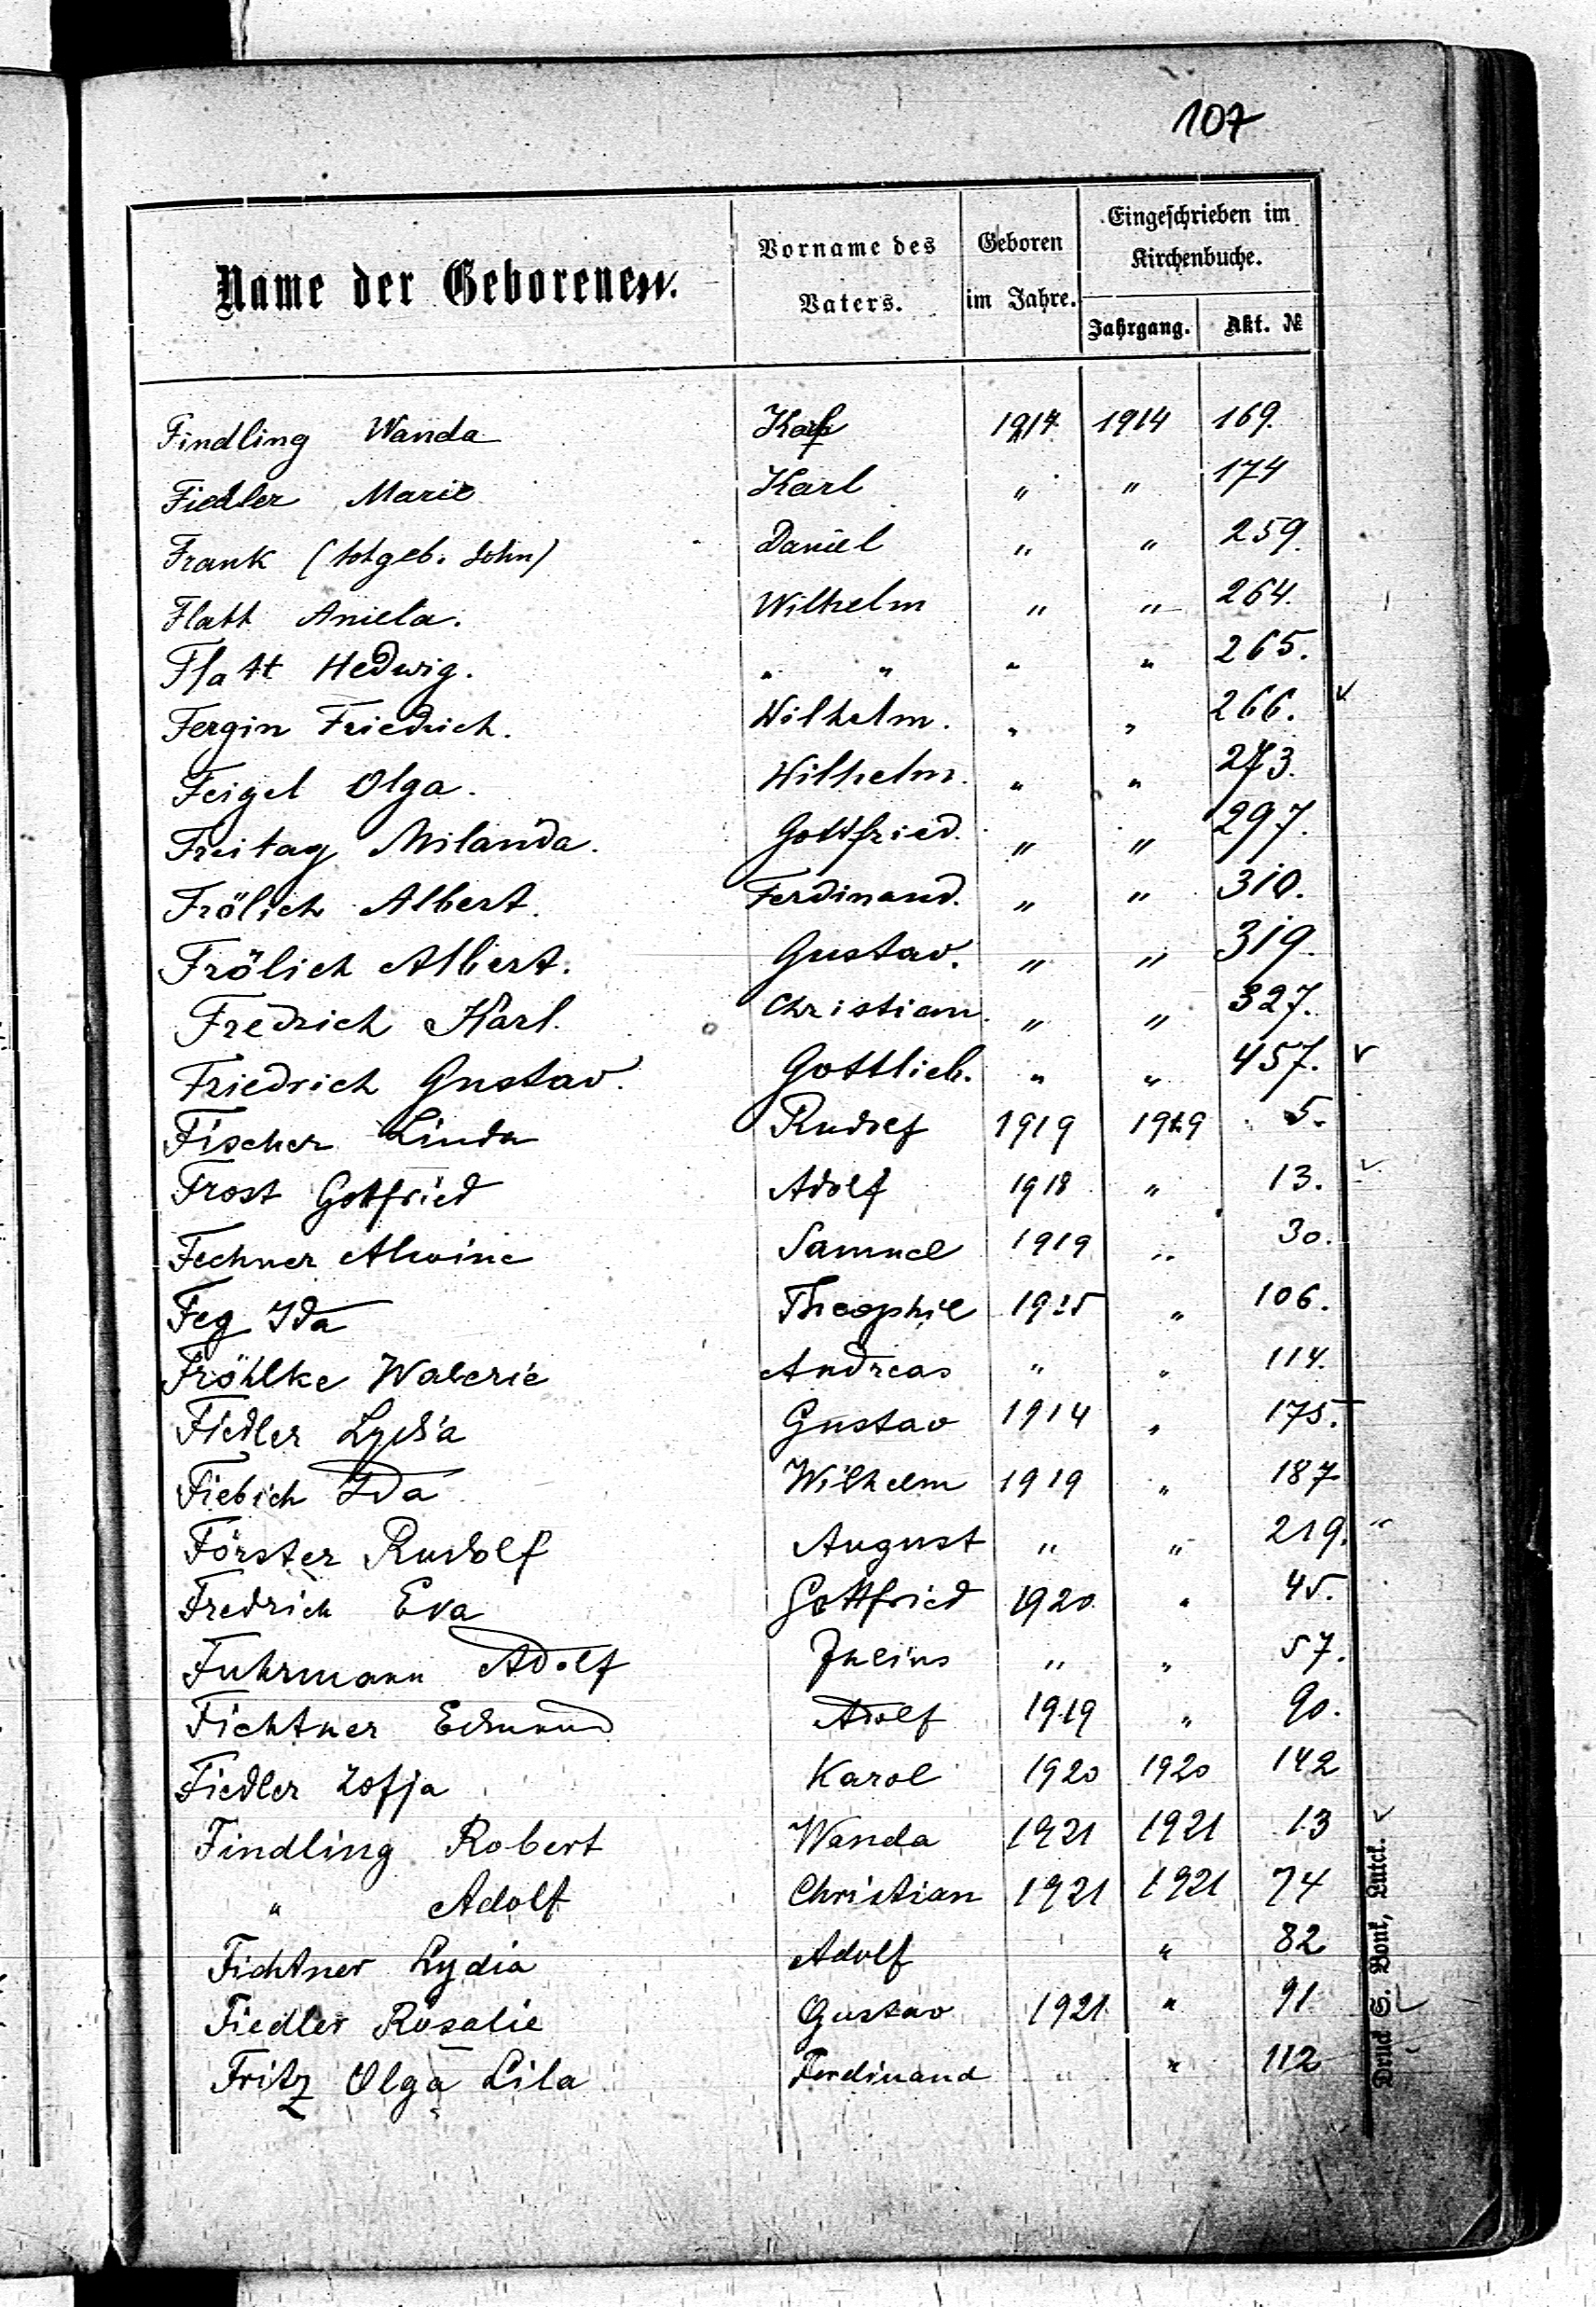 107
Name der Geborenen.
Vorname des Vaters.
Geboren im Jahre.
Eingeschrieben im Kirchenbuche.
Jahrgang. Akt. №
Findling Wanda Karl 1914 1914 169.
Fiedler Marie Karl " " 174
Frank (totgeb. Sohn) Daniel " " 259.
Flatt Aniela. Wilhelm " " 264.
Flatt Hedwig. " " " " 265.
Fergin Friedrich. Wilhelm. " " 266. v
Feigel Olga. Wilhelm. " " 273.
Freitag Milanda. Gottfried. " " 297.
Frölich Albert. Ferdinand. " " 310.
Frölich Albert. Gustav. " " 319.
Fredrich Karl. Christian. " " 327.
Friedrich Gustav. Gottlieb. " " 457. v
Fischer Linda Rudolf 1919 1919 5.
Frost Gottfried Adolf 1918 " 13. v
Fechner Alwine Samuel 1919 " 30.
Feg Ida Theophil 1915 " 106.
Fröhlke Walerie Andreas " " 114.
Fiedler Lydia Gustav 1914 " 175.
Fiebich Ida Wilhelm 1919 " 187
Förster Rudolf August " " 219.
Fredrich Eva Gottfried 1920 " 45.
Fuhrmann Adolf Julius " " 57.
Fichtner Edmund Adolf 1919 " 90.
Fiedler Zofja Karol 1920 1920 142
Findling Robert Wanda 1921 1921 13 v
" Adolf Christian 1921 1921 74
Fichtner Lydia Adolf " 82
Fiedler Rosalie Gustav 1921 " 91
Fritz Olga Lila Ferdinand " " 112
Druck S. Bonk, Lutck.